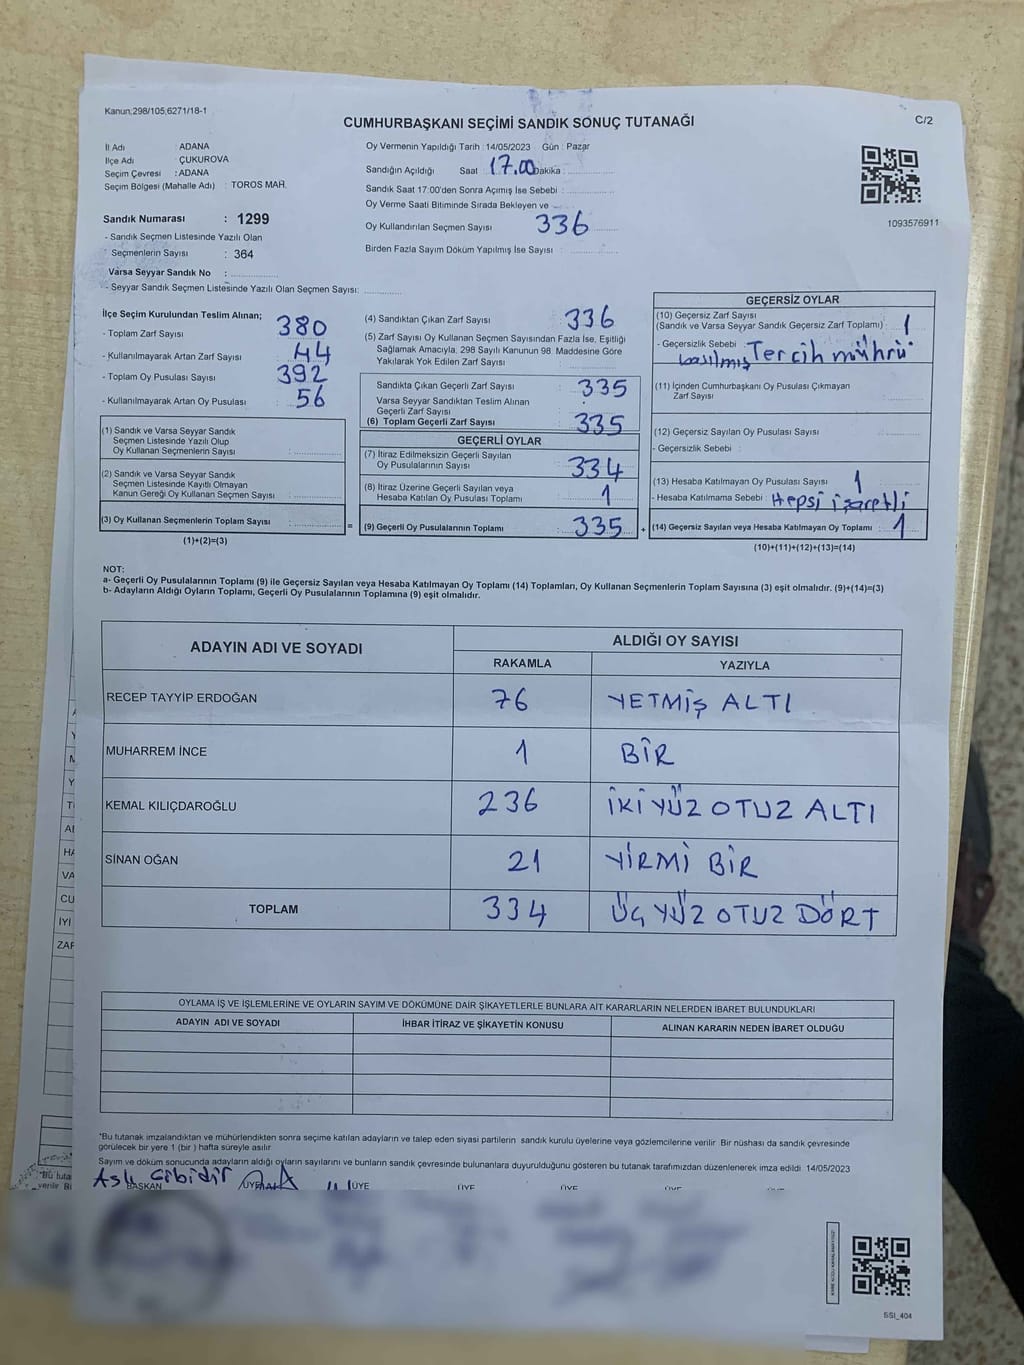 Kanun;298/105;6271/18-1
CUMHURBAŞKANI SEÇİMİ SANDIK SONUÇ TUTANAĞI
C/2
İl Adı : ADANA
İlçe Adı : ÇUKUROVA
Seçim Çevresi : ADANA
Seçim Bölgesi (Mahalle Adı) : TOROS MAH.
Oy Vermenin Yapıldığı Tarih : 14/05/2023 Gün : Pazar
Sandığın Açıldığı Saat 17.00 Dakika :
Sandık Saat 17:00'den Sonra Açımış İse Sebebi :
Oy Verme Saati Bitiminde Sırada Bekleyen ve
Oy Kullandırılan Seçmen Sayısı 336
Birden Fazla Sayım Döküm Yapılmış İse Sayısı :
1093576911
Sandık Numarası : 1299
- Sandık Seçmen Listesinde Yazılı Olan
Seçmenlerin Sayısı : 364
Varsa Seyyar Sandık No :
- Seyyar Sandık Seçmen Listesinde Yazılı Olan Seçmen Sayısı:
İlçe Seçim Kurulundan Teslim Alınan;
- Toplam Zarf Sayısı 380
- Kullanılmayarak Artan Zarf Sayısı : 44
- Toplam Oy Pusulası Sayısı 392
- Kullanılmayarak Artan Oy Pusulası : 56
(1) Sandık ve Varsa Seyyar Sandık
Seçmen Listesinde Yazılı Olup
Oy Kullanan Seçmenlerin Sayısı :
(2) Sandık ve Varsa Seyyar Sandık
Seçmen Listesinde Kayıtlı Olmayan
Kanun Gereği Oy Kullanan Seçmen Sayısı :
(3) Oy Kullanan Seçmenlerin Toplam Sayısı :
(1)+(2)=(3)
(4) Sandıktan Çıkan Zarf Sayısı : 336
(5) Zarf Sayısı Oy Kullanan Seçmen Sayısından Fazla İse, Eşitliği
Sağlamak Amacıyla, 298 Sayılı Kanunun 98. Maddesine Göre
Yakılarak Yok Edilen Zarf Sayısı :
Sandıkta Çıkan Geçerli Zarf Sayısı : 335
Varsa Seyyar Sandıktan Teslim Alınan
Geçerli Zarf Sayısı :
(6) Toplam Geçerli Zarf Sayısı : 335
GEÇERLİ OYLAR
(7) İtiraz Edilmeksizin Geçerli Sayılan
Oy Pusulalarının Sayısı : 334
(8) İtiraz Üzerine Geçerli Sayılan veya
Hesaba Katılan Oy Pusulası Toplamı : 1
= (9) Geçerli Oy Pusulalarının Toplamı : 335 +
GEÇERSİZ OYLAR
(10) Geçersiz Zarf Sayısı
(Sandık ve Varsa Seyyar Sandık Geçersiz Zarf Toplamı) : 1
- Geçersizlik Sebebi : Tercih mührü
basılmış
(11) İçinden Cumhurbaşkanı Oy Pusulası Çıkmayan
Zarf Sayısı :
(12) Geçersiz Sayılan Oy Pusulası Sayısı
- Geçersizlik Sebebi :
(13) Hesaba Katılmayan Oy Pusulası Sayısı : 1
- Hesaba Katılmama Sebebi : Hepsi işaretli
(14) Geçersiz Sayılan veya Hesaba Katılmayan Oy Toplamı : 1
(10)+(11)+(12)+(13)=(14)
NOT:
a- Geçerli Oy Pusulalarının Toplamı (9) ile Geçersiz Sayılan veya Hesaba Katılmayan Oy Toplamı (14) Toplamları, Oy Kullanan Seçmenlerin Toplam Sayısına (3) eşit olmalıdır. (9)+(14)=(3)
b- Adayların Aldığı Oyların Toplamı, Geçerli Oy Pusulalarının Toplamına (9) eşit olmalıdır.
ADAYIN ADI VE SOYADI
ALDIĞI OY SAYISI
RAKAMLA YAZIYLA
RECEP TAYYİP ERDOĞAN 76 YETMİŞ ALTI
MUHARREM İNCE 1 BİR
KEMAL KILIÇDAROĞLU 236 İKİ YÜZ OTUZ ALTI
SİNAN OĞAN 21 YİRMİ BİR
TOPLAM 334 ÜÇ YÜZ OTUZ DÖRT
OYLAMA İŞ VE İŞLEMLERİNE VE OYLARIN SAYIM VE DÖKÜMÜNE DAİR ŞİKAYETLERLE BUNLARA AİT KARARLARIN NELERDEN İBARET BULUNDUKLARI
ADAYIN ADI VE SOYADI İHBAR İTİRAZ VE ŞİKAYETİN KONUSU ALINAN KARARIN NEDEN İBARET OLDUĞU
*Bu tutanak imzalandıktan ve mühürlendikten sonra seçime katılan adayların ve talep eden siyasi partilerin sandık kurulu üyelerine veya gözlemcilerine verilir. Bir nüshası da sandık çevresinde
görülecek bir yere 1 (bir ) hafta süreyle asılır
Sayım ve döküm sonucunda adayların aldığı oyların sayılarını ve bunların sandık çevresinde bulunanlara duyurulduğunu gösteren bu tutanak tarafımızdan düzenlenerek imza edildi. 14/05/2023
Aslı Gibidir
BAŞKAN ÜYE ÜYE ÜYE ÜYE ÜYE ÜYE
SSI_404